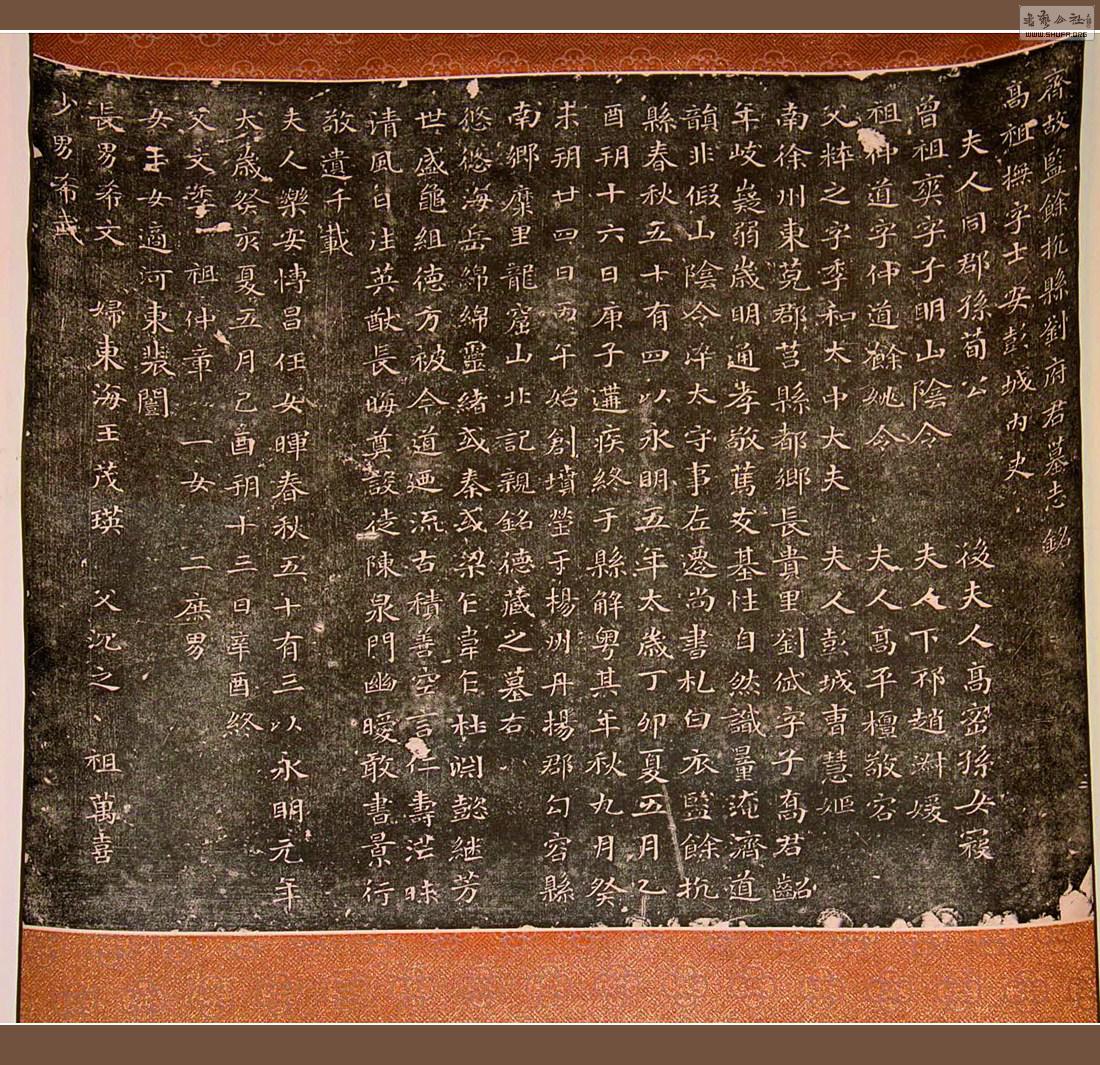 齊故監餘杭縣劉府君墓志銘
高祖撫字士安彭城內史
夫人同郡孫荀公 後夫人高密孫女寇
曾祖爽字子明山陰令 夫人下邳趙淑媛
祖仲道字仲道餘姚令 夫人高平檀敬容
父粹之字季和太中大夫 夫人彭城曹慧姬
南徐州東莞郡莒縣都鄉長貴里劉岱字子喬君齠
年岐嶷弱歲明通孝敬篤友基性自然識量淹濟道
韻非假山陰令淬太守事左遷尚書札白衣監餘杭
縣春秋五十有四以永明五年太歲丁卯夏五月乙
酉朔十六日庚子遘疾終于縣解粵其年秋九月癸
未朔廿四日丙午始創墳塋于楊州丹楊郡勾容縣
南鄉糜里龍窟山北記親銘德藏之墓右
悠悠海岳綿綿靈緒或秦或梁乍韋乍杜淵懿継芳
世盛龜組德方被今道迺流古積善空言仁壽茫昧
清風日往英猷長晦奠設徒陳泉門幽曖敢書景行
敬遺千載
夫人樂安博昌任女暉春秋五十有三以永明元年
太歲癸亥夏五月己酉朔十三日辛酉終
父文季 祖仲章 一女 二庶男
女玉女適河東裴闓
長男希文 婦東海王茂瑛 父沉之 祖萬喜
少男希武
書藝公社
WWW.SHUFA.ORG